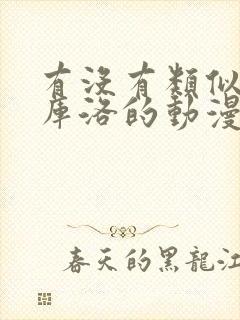 有沒有類似
庫洛的動漫
春天的黑龍江